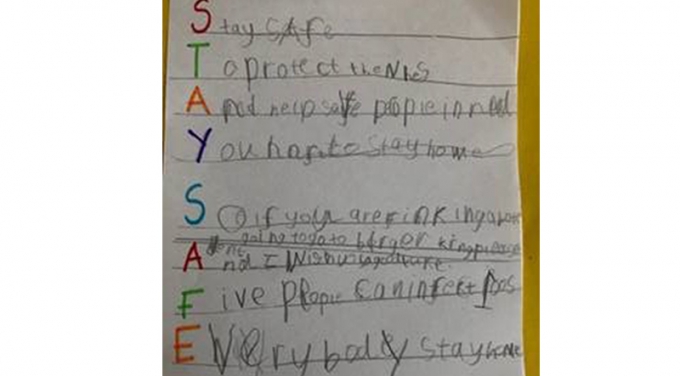 Stay SAfe
To protect the NhS
And help safe people in need
You hav to stay home
So if your are finking about
going to go to berger king please
dont
And I Wish you good luke.
Five Pfopie can infect
EVerybody stay home